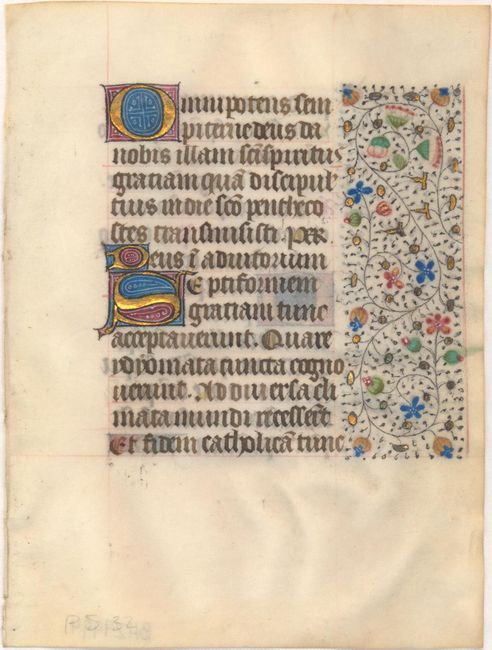 Omnipotens sem
piterne deus da
nobis illam sc̄i spiritus
graciam quā discipul̄
tuis in die sc̄o pentheco
stes transmisisti. Per
Deus ī adiutorium
Septiformem
graciam tunc
acceptauerunt. Quare
ydyomata cuncta cogno
uerunt. Ad diuersa cli
mata mundi recesserūt
Et fidem catholicā tunc